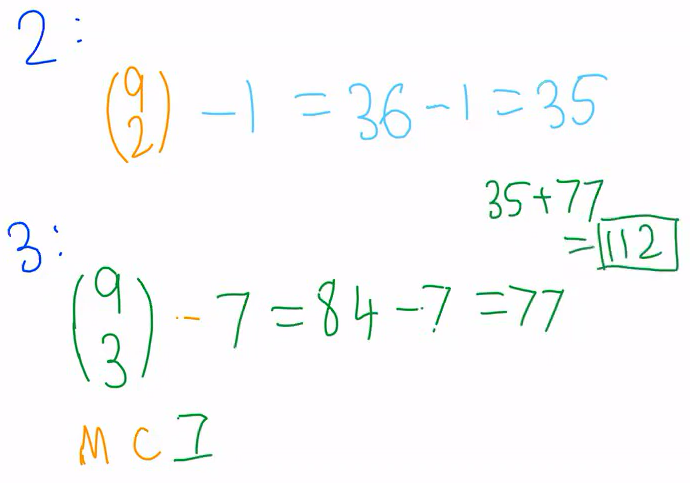 2:
(9 2) - 1 = 36 - 1 = 35
35 + 77
= 112
3:
(9 3) - 7 = 84 - 7 = 77
M C I